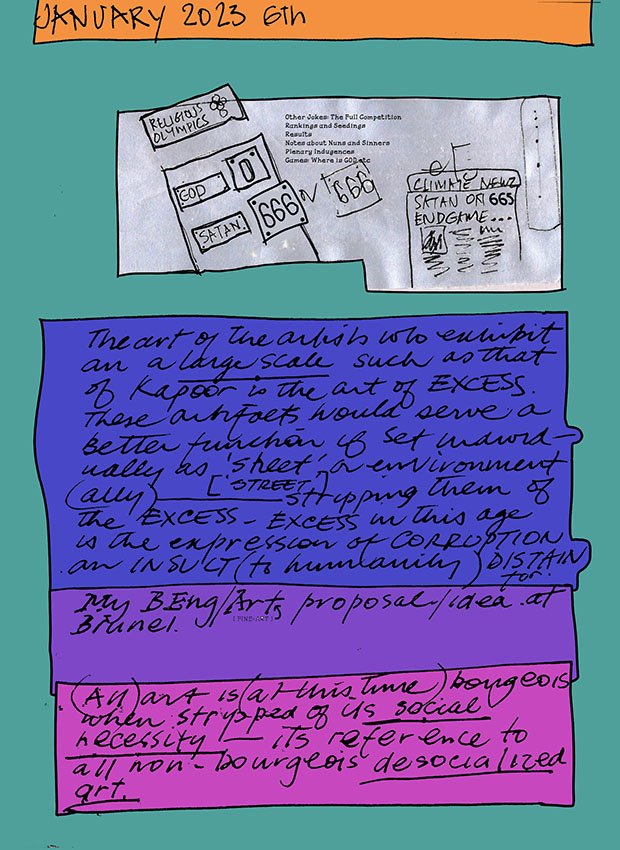 JANUARY 2023 6th
RELIGIOUS
OLYMPICS
Other Jokes: The Full Competition
Rankings and Seedings
Results
Notes about Nuns and Sinners
Plenary Indugences
Games: Where is GOD etc
GOD 0
SATAN 666
666
CLIMATE NEWZ
SATAN ON 665
ENDGAME...
The art of the artists who exhibit
on a large scale such as that
of Kapoor is the art of EXCESS.
These artifacts would serve a
better function if set individ-
ually as 'street' or environment
(ally) ['STREET']
stripping them of
the EXCESS - EXCESS in this age
is the expression of CORRUPTION
an INSULT (to humanity) DISTAIN
for.
My BEng/Arts proposal/idea at
[FINE-ART]
Brunel.
(All) art is (at this time) bourgeois
when stripped of its social
necessity — its reference to
all non-bourgeois desocialized
art.